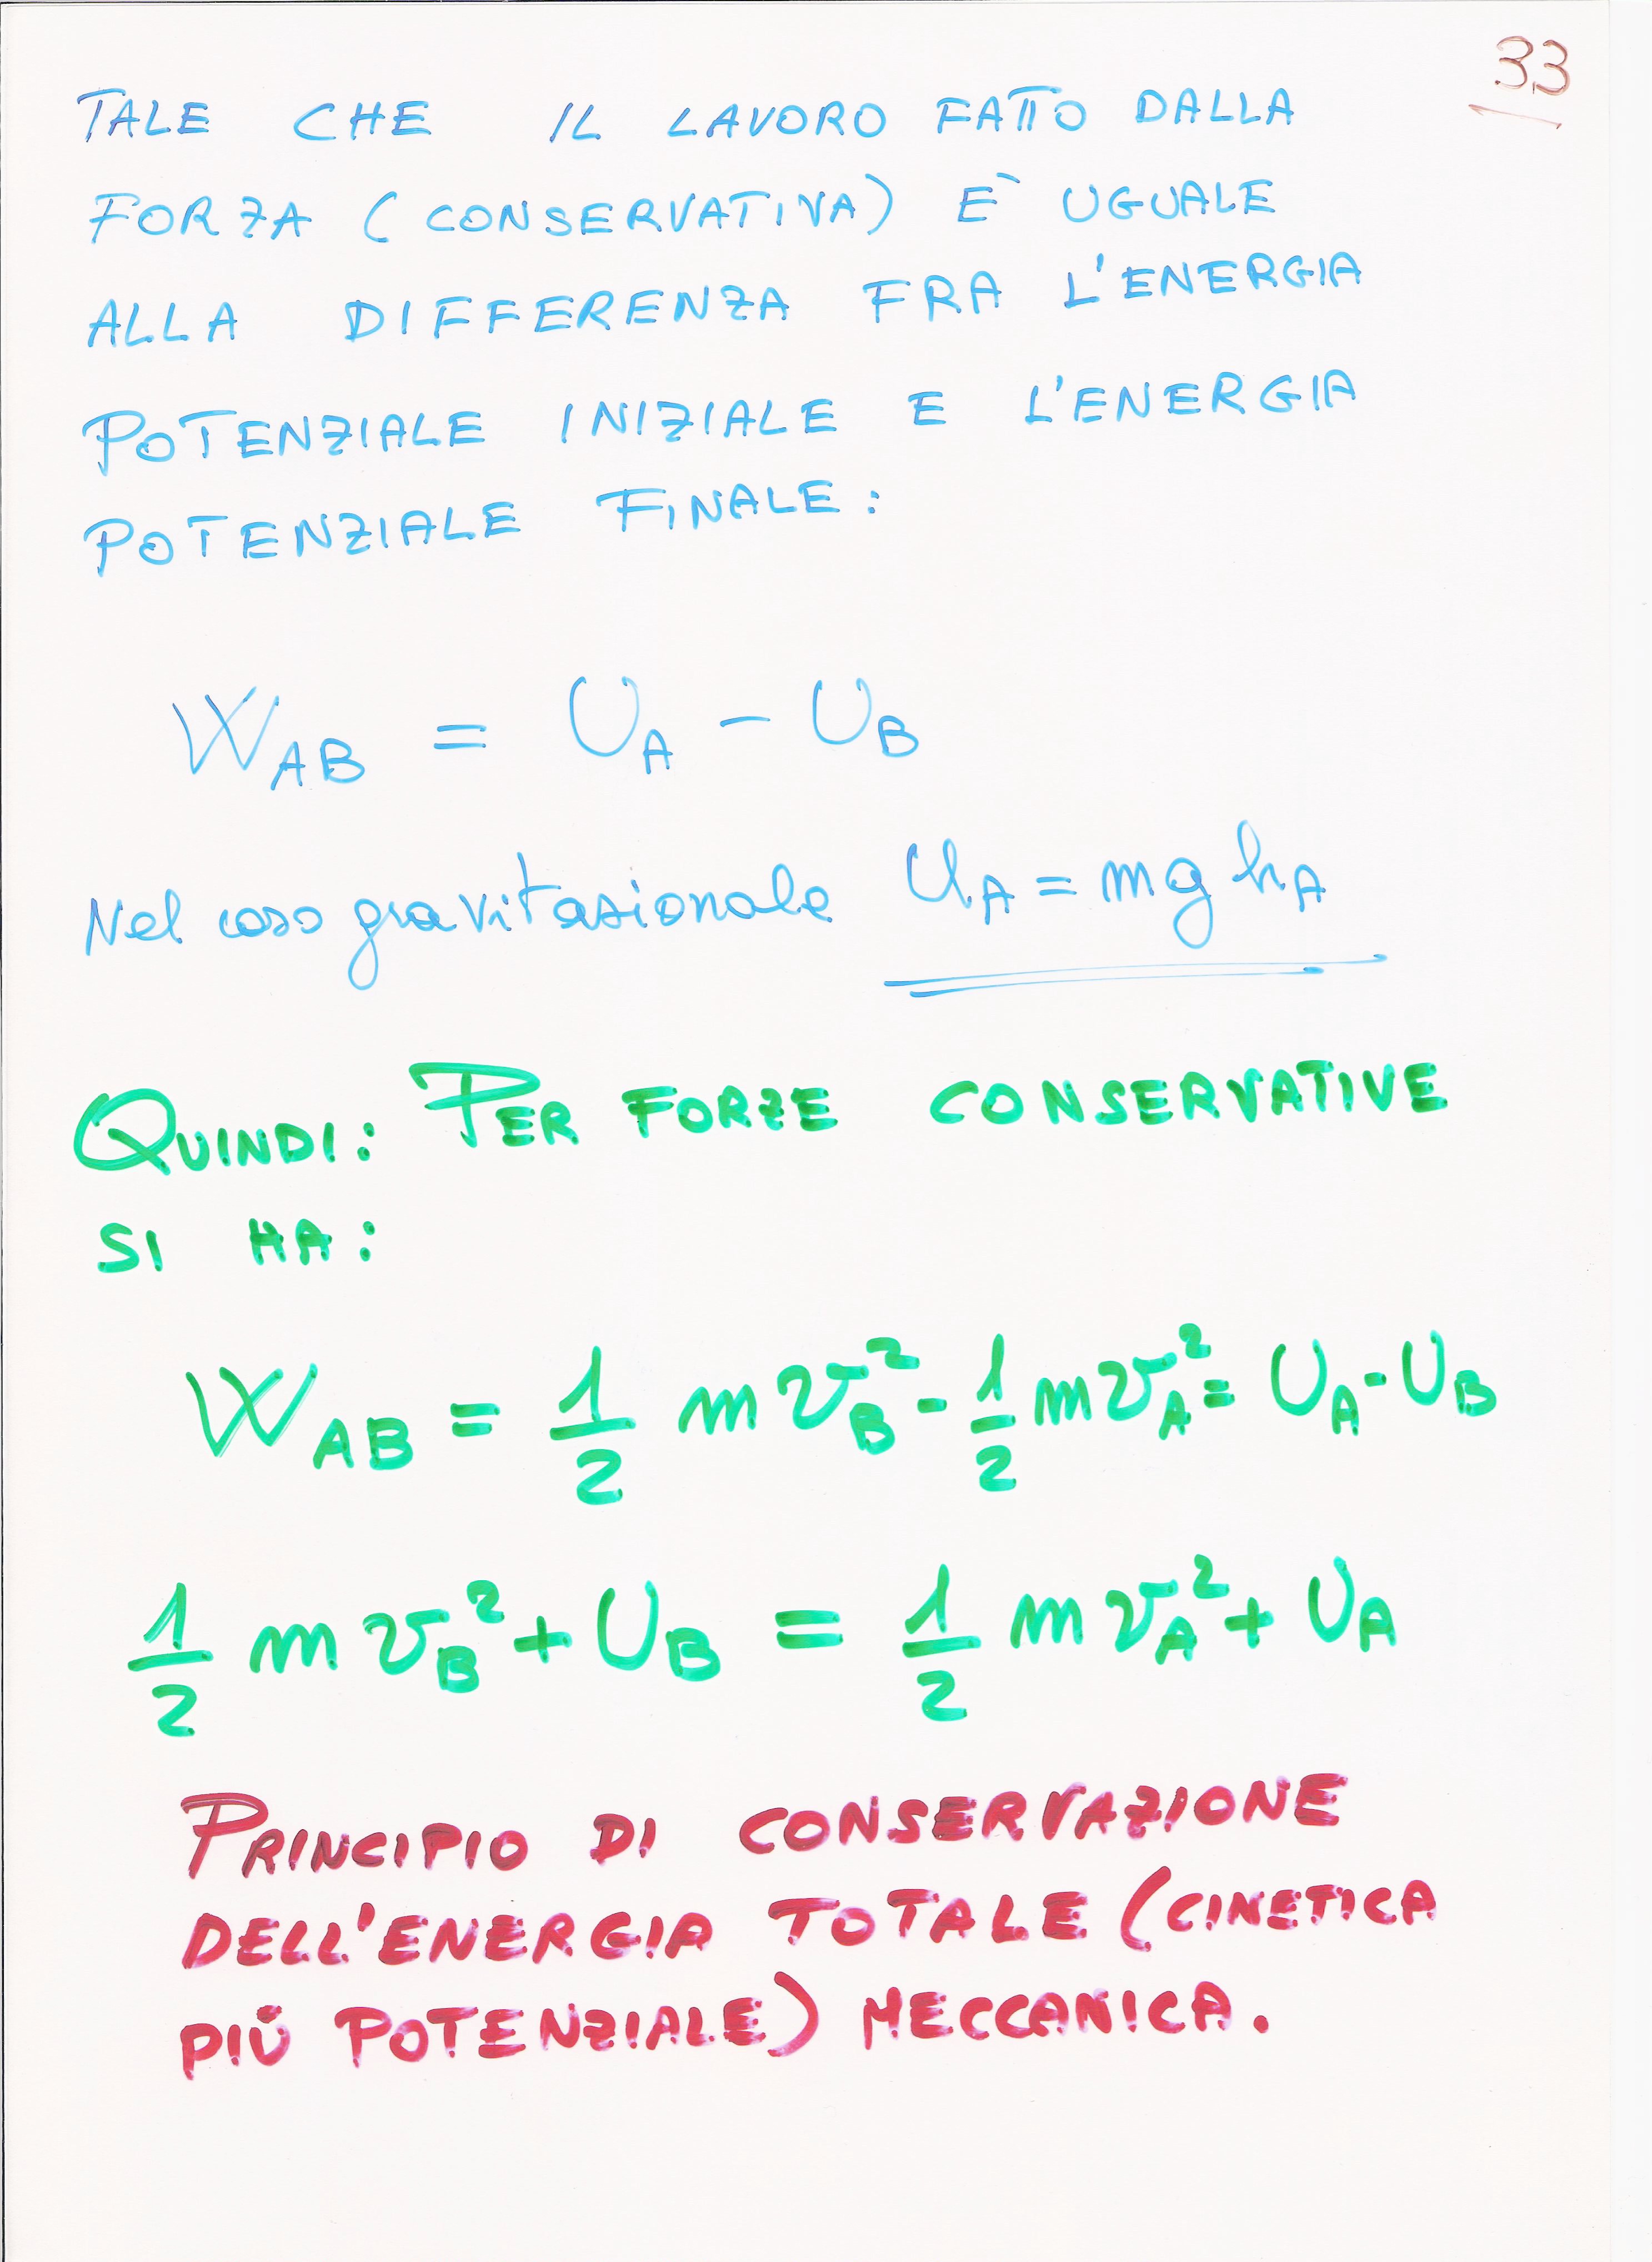 33
TALE CHE IL LAVORO FATTO DALLA
FORZA (CONSERVATIVA) E` UGUALE
ALLA DIFFERENZA FRA L'ENERGIA
POTENZIALE INIZIALE E L'ENERGIA
POTENZIALE FINALE:
W_AB = U_A - U_B
Nel caso gravitazionale U_A = mgh_A
QUINDI: PER FORZE CONSERVATIVE
SI HA:
W_AB = 1/2 m v_B² - 1/2 m v_A² = U_A - U_B
1/2 m v_B² + U_B = 1/2 m v_A² + U_A
PRINCIPIO DI CONSERVAZIONE
DELL'ENERGIA TOTALE (CINETICA
PIÙ POTENZIALE) MECCANICA.